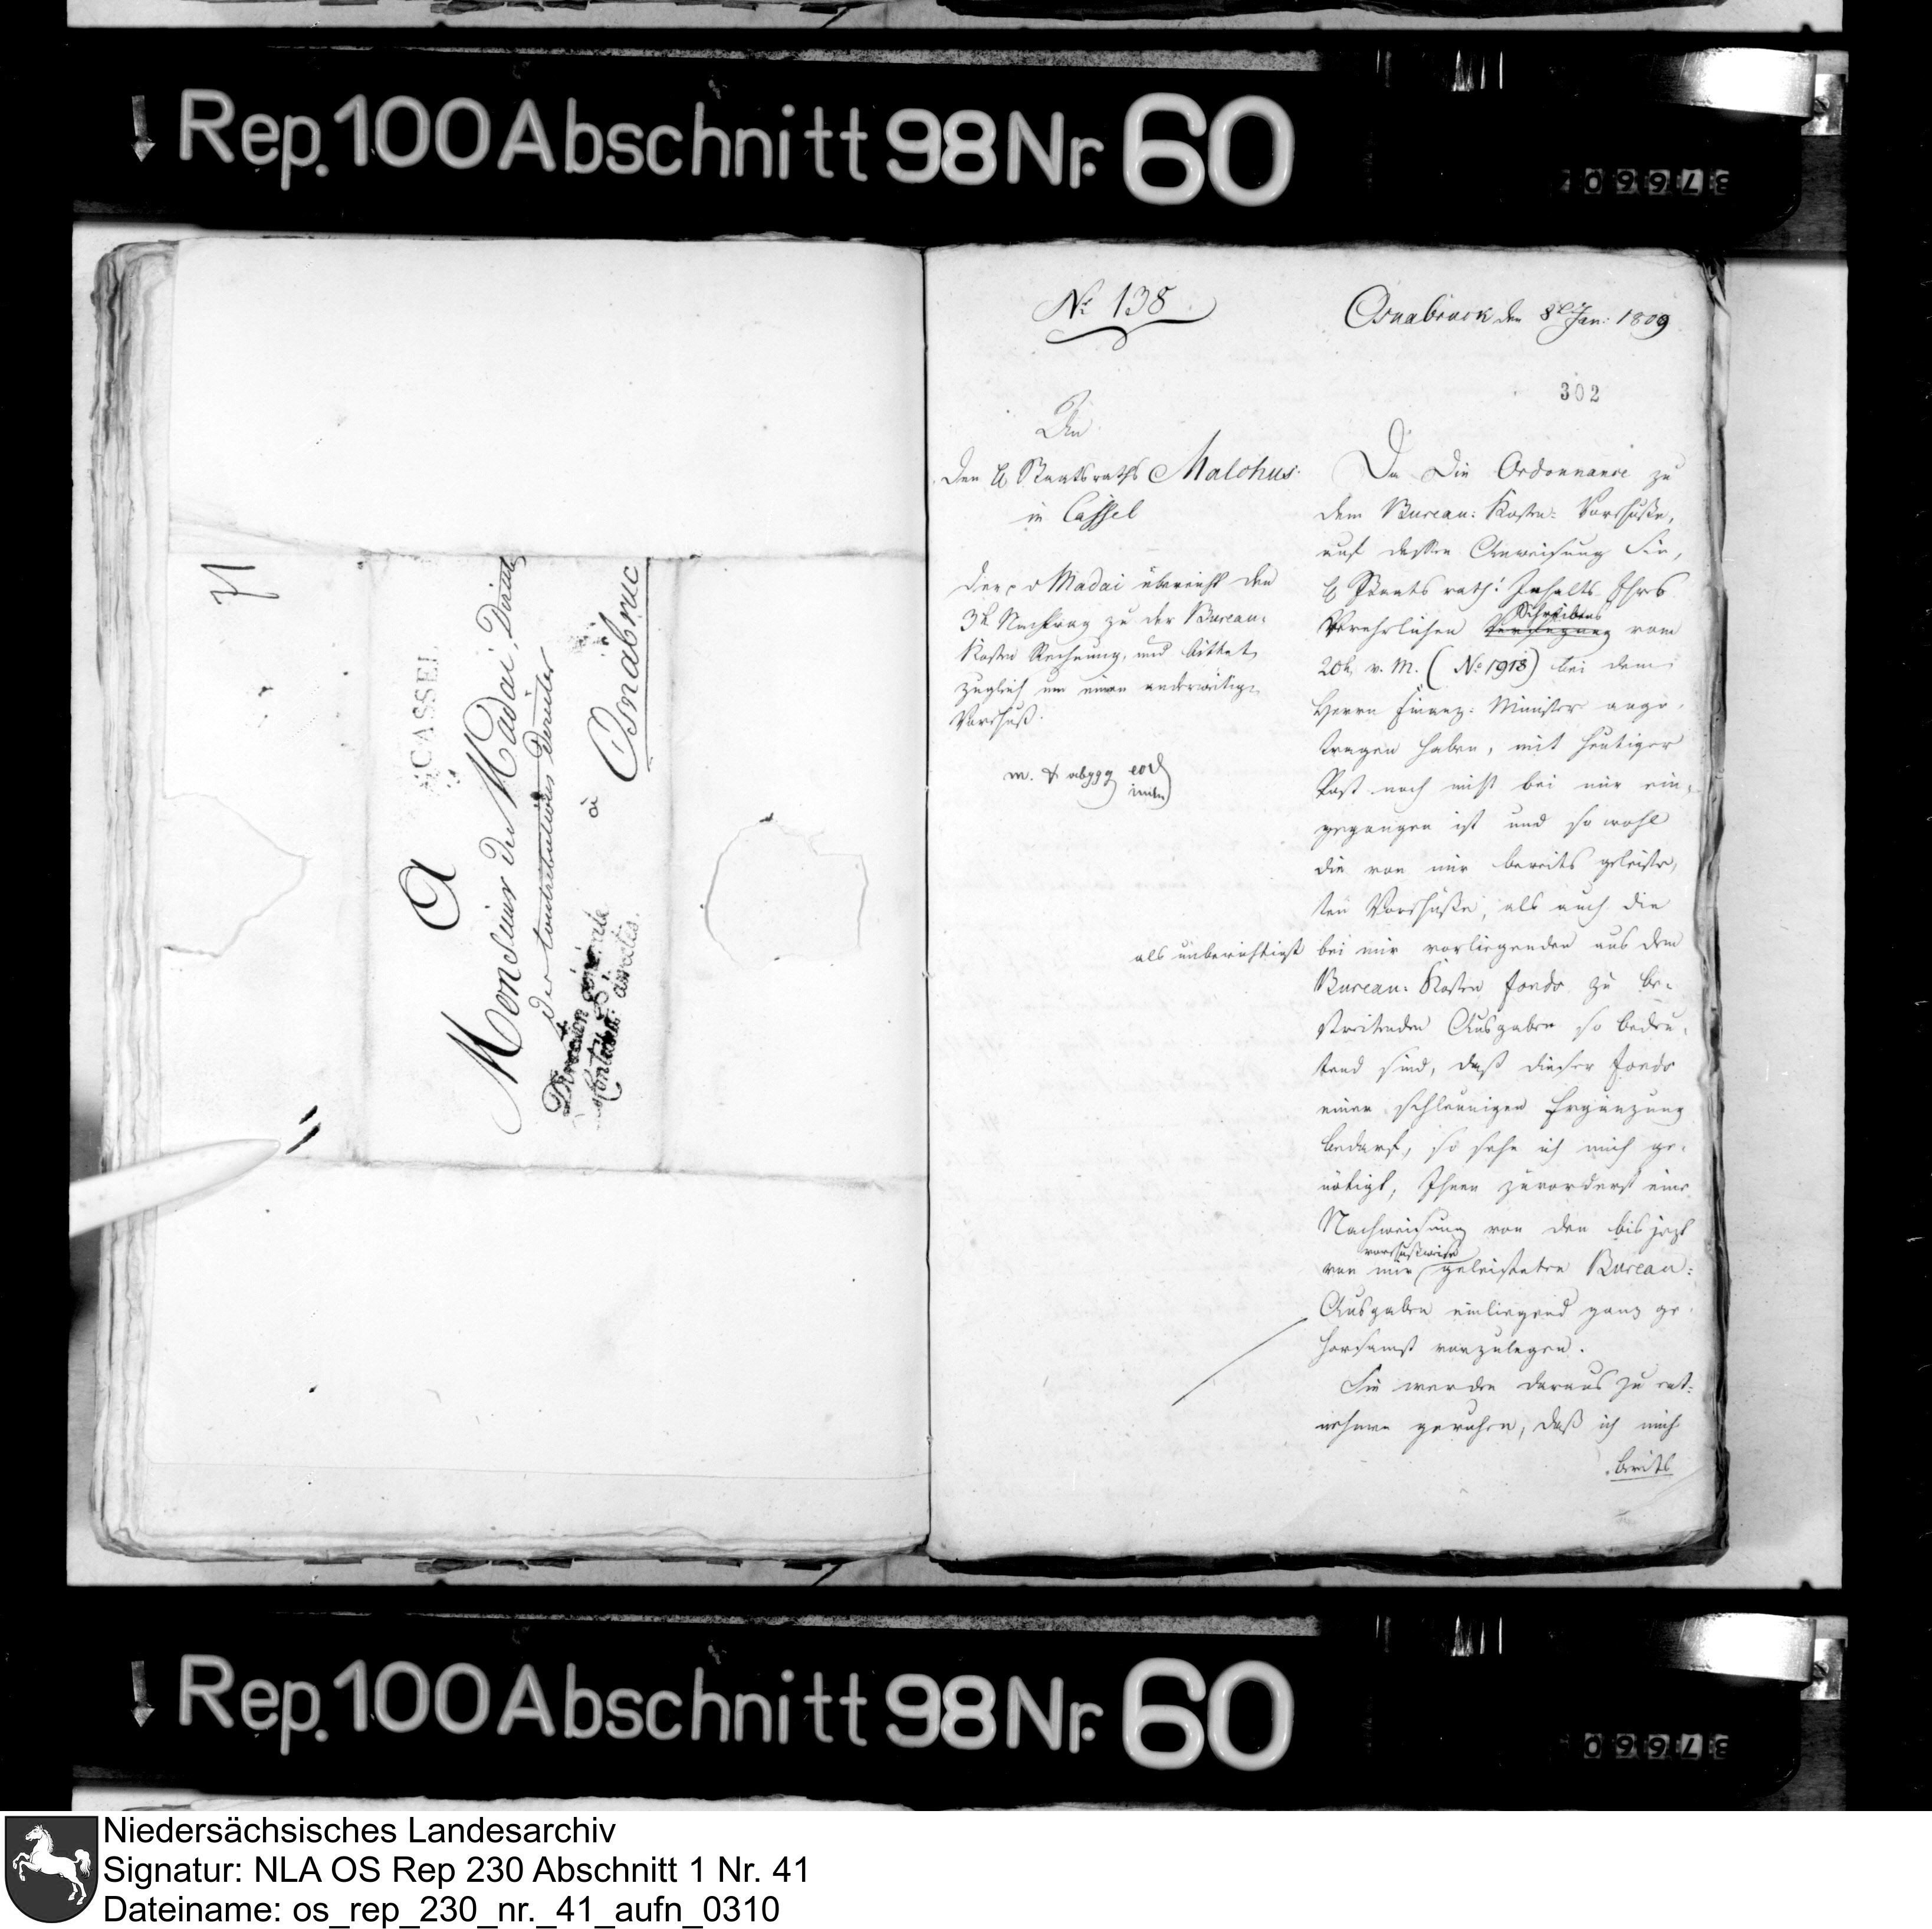 Rep. 100 Abschnitt 98 Nr. 60
37660
71
CASSEL
A
Monsieur de Madai, Directeur
des contributions directes
à
Osnabruc
Direction générale
des Contribut. directes.
No 138
Osnabrück den 8t Jan: 1809
302
An
den H Staatsraths Malchus
in Cassel
Der p v Madai überreicht den
3t Nachtrag zu der Bureau-
Kosten Rechnung, und bittet
zugleich um einen anderweitigen
Vorschuß.
Da die Ordonnance zu
dem Bureau-Kosten-Vorschuße,
auf dessen Anweisung Sie,
H Staatsrath! Inhalts Ihres
Verehrlichen Schreibens vom
20t v. M. (No 1918) bei dem
Herrn Finanz-Minister ange-
tragen haben, mit heutiger
Post noch nicht bei mir ein-
gegangen ist und so wohl
die von mir bereits geleiste-
ten Vorschüße, als auch die
als unberichtigt bei mir vorliegenden aus dem
Bureau-Kosten fonds zu be-
streitenden Ausgaben so bedeu-
tend sind, daß dieser fonds
einer schleunigen Ergänzung
bedarf, so sehe ich mich ge-
nötigt, Ihnen zuvorderst eine
Nachweisung von den bis jezt
von mir vorschußweise geleisteten Bureau-
Ausgaben einliegend ganz ge-
horsamst vorzulegen.
Sie werden daraus zu ent-
nehmen geruhen, daß ich mich
bereits
Rep. 100 Abschnitt 98 Nr. 60
37660
Niedersächsisches Landesarchiv
Signatur: NLA OS Rep 230 Abschnitt 1 Nr. 41
Dateiname: os_rep_230_nr._41_aufn_0310